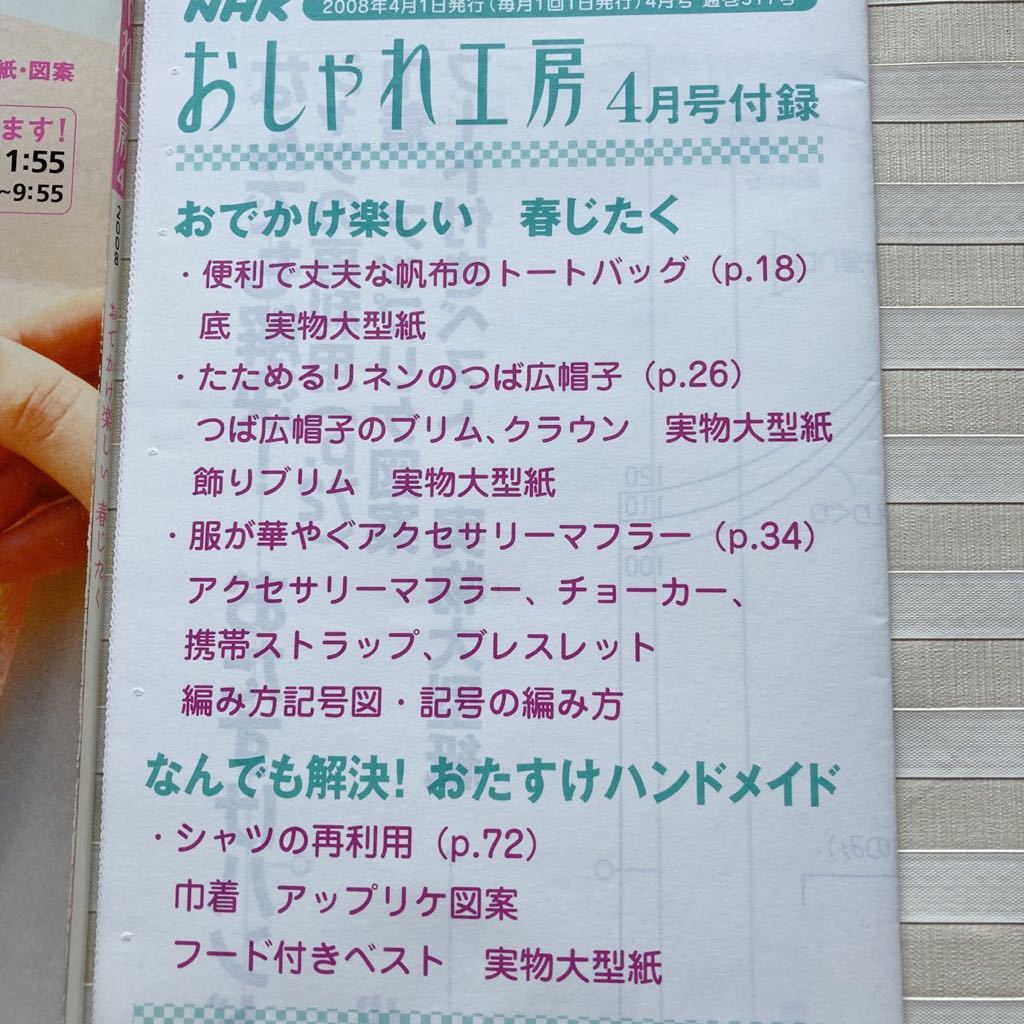 NHK
2008年4月1日発行(毎月1回1日発行)4月号 通巻317号
おしゃれ工房 4月号付録
おでかけ楽しい 春じたく
・便利で丈夫な帆布のトートバッグ(p.18)
底 実物大型紙
・たためるリネンのつば広帽子(p.26)
つば広帽子のブリム、クラウン 実物大型紙
飾りブリム 実物大型紙
・服が華やぐアクセサリーマフラー(p.34)
アクセサリーマフラー、チョーカー、
携帯ストラップ、ブレスレット
編み方記号図・記号の編み方
なんでも解決! おたすけハンドメイド
・シャツの再利用(p.72)
巾着 アップリケ図案
フード付きベスト 実物大型紙
紙・図案
ます!
1:55
~9:55
工房 4
2008
おでかけ楽しい 春じたく